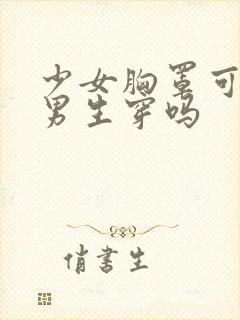 少女胸罩可
男生穿吗
俏書生